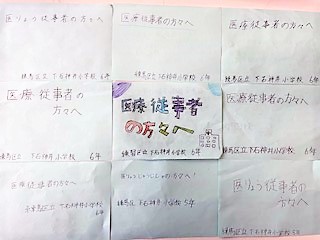 医りょう従事者の方々へ
練馬区立下石神井小学校 6年
医療従事者の方々へ
練馬区立 下石神井小学校 6年
医療従事者の方々へ
練馬区立下石神井小学校 6年
医療従事者の
方々へ
練馬区立 下石神井小学校 6年
医療従事者
の方々へ
練馬区立 下石神井小学校 6年
医療従事者の
方々へ
練馬区立下石神井小学校 6年
医療従事者の方々へ
練馬区立下石神井小学校
6年
医りょうじゅうじしゃの方々へ!
練馬区立 下石神井小学校 5年
医りょう従事者の
方々へ
練馬区立下石神井小学校 5年